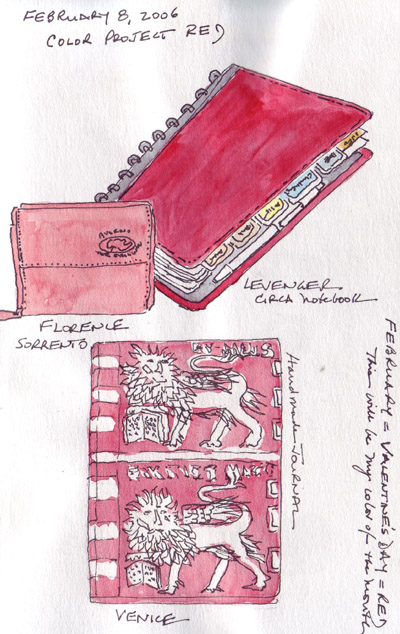 FEBRUARY 8, 2006
COLOR PROJECT RED
LEVENGER
CIRCA NOTEBOOK
FLORENCE
SORRENTO
Handmade JOURNAL
VENICE
FEBRUARY = VALENTINE'S DAY = RED
This will be my color of the month